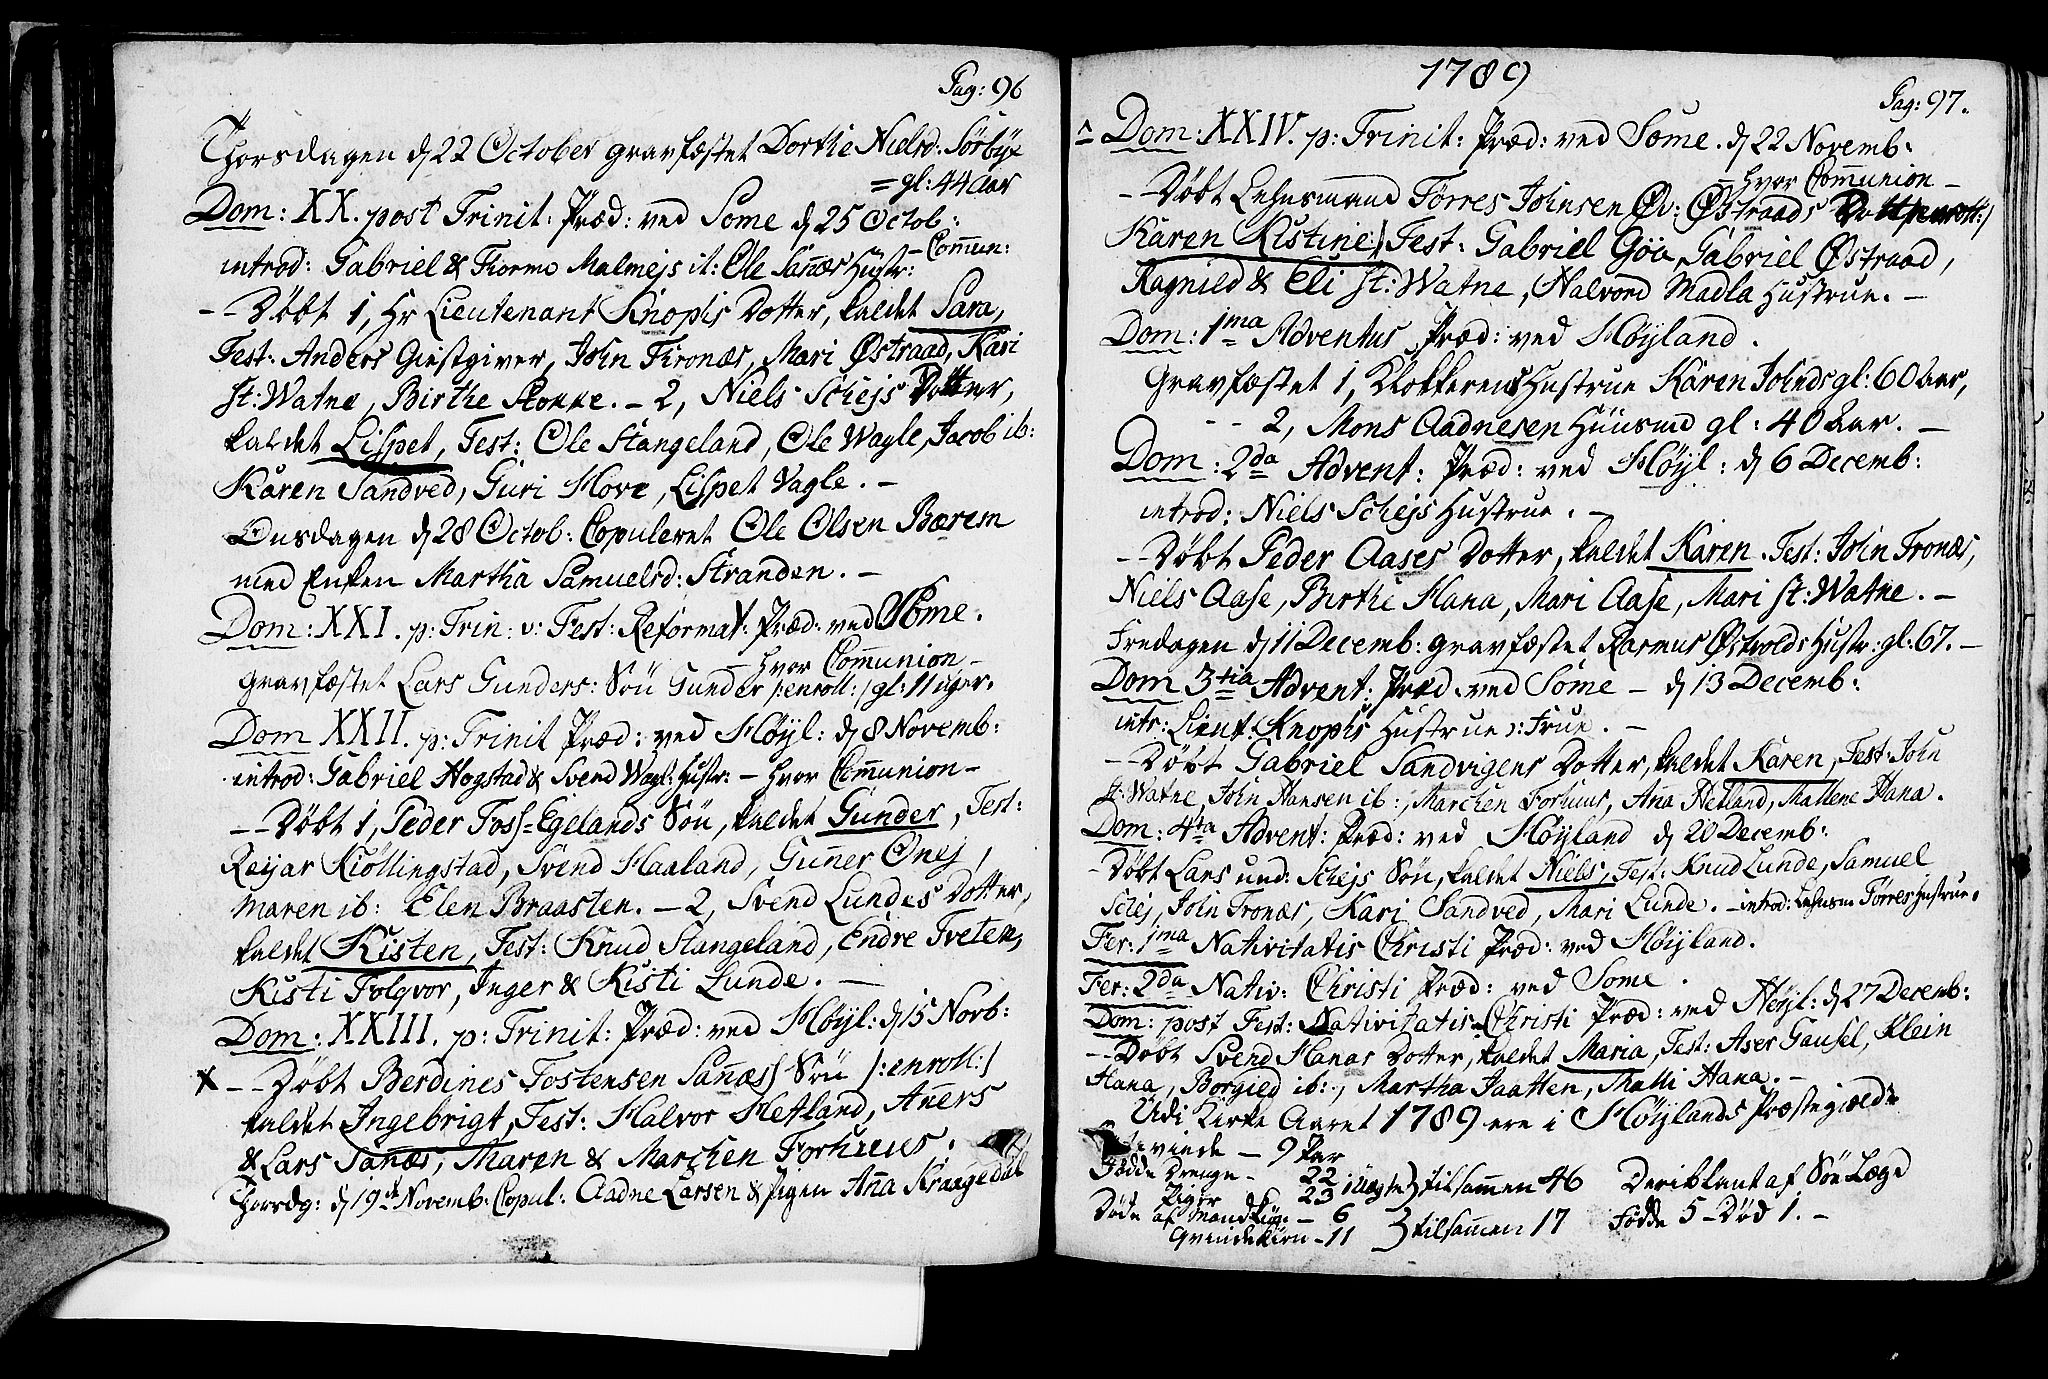 Pag: 96
Thorsdagen d 22 October gravfæstet Dorthe Nielsd: Sörbÿe
= gl: 44 Aar
Dom: XX. post Trinit: Præd: ved Some d 25 Octob:
– Commun:
introd: Gabriel & Thormo Malmejs it: Ole Sañæs Hustr:
– – Döbt 1, Hr Lieutenant Knophs Dotter, kaldet Sara,
Test: Anders Giestgiver, John Tronæs, Mari Østraad, Kari
st: Watne, Birthe Stokke. – 2, Niels Schejs Dotter,
kaldet Lispet, Test: Ole Stangeland, Ole Wagle, Jacob ib:
Karen Sandved, Guri Hove, Lispet Vagle. –
Onsdagen d 28 Octob: Copuleret Ole Olsen Bærem
med Enken Martha Samuelsd: Stranden. –
Dom: XXI. p: Trin: v: Fest: Reformat: Præd: ved Some.
– hvor Com̄union –
gravfæstet Lars Gunders: Sön Gunder /: enroll: / gl: 11 uger.
Dom XXII. p: Trinit Præd: ved Höyl: d 8 Novemb:
introd: Gabriel Hogstad & Svend Wagl: Hustr: – hvor Com̄union –
– – Döbt 1, Peder Foss=Egelands Sön, kaldet Gunder, Test:
Reijar Kiöllingstad, Svend Haaland, Guñer Onej,
Maren ib: Elen Braasten. – 2, Svend Lundes Dotter,
kaldet Kisten, Test: Knud Stangeland, Endre Tveten,
Kisti Folqvor, Inger & Kisti Lunde. –
Dom: XXIII. p: Trinit: Præd: ved Höyl: d 15 Novb:
X – – Döbt Berdines Tostensen Sañæs Sön /: enroll: /
kaldet Ingebrigt, Test: Halvor Hetland, Añers
& Lars Sañæs, Maren & Marchen Forhuus.
Thorsdg: d 19de Novemb: Copul: Aadne Larsen & Pigen Aña Kraagedal
1789
Pag: 97.
Dom: XXIV. p: Trinit: Præd: ved Some. d 22 Novemb:
– hvor Com̄union –
– Döbt Lehnsmand Törres Johnsen Öv: Østraads Dott /: enroll: /
Karen Kistine, Test: Gabriel Göa, Gabriel Østraad,
Ragnild & Eli st: Watne, Halvord Madla Hustrue. –
Dom: 1ma Adventus Præd: ved Höyland.
Gravfæstet 1, Klokkerens Hustrue Karen Johnds gl: 60 Aar,
– – 2, Mons Aadnesen Huusmd gl: 40 Aar. –
Dom: 2da Advent: Præd: ved Höyl: d 6 Decemb:
introd: Niels Schejs Hustrue. –
– Döbt Peder Aases Dotter, kaldet Karen. Test: John Tronæs,
Niels Aase, Birthe Hana, Mari Aase, Mari st: Watne. –
Fredagen d 11 Decemb: gravfæstet Rasmus Østvolds Hustr: gl: 67. –
Dom 3tia Advent: Præd: ved Some – d 13 Decemb:
intr: Lieut: Knophs Hustrue ɔ: Frue. –
– – Döbt Gabriel Sandvigens Dotter, kaldet Karen, Test: John
st: Watne, John Hansen ib:, Marchen Forhuus, Aña Hetland, Mallene Hana.
Dom: 4ta Advent: Præd: ved Höyland d 20 Decemb:
– Döbt Lars und: Schejs Sön, kaldet Niels, Test: Knud Lunde, Samuel
Schej, John Tronæs, Kari Sandved, Mari Lunde. – introd: Lehnsm Törres Hustrue.
Fer: 1ma Nativitatis Christi Præd: ved Höyland.
Fer: 2da Nativ: Christi Præd: ved Some.
Dom: post Fest: Nativitatis Christi Præd: ved Höyl: d 27 Decemb:
– – Döbt Svend Hanas Dotter, kaldet Maria, Test: Aser Gausel, Klein
Hana, Borgild ib:, Martha Jaatten, Malli Hana. –
Udi Kirke Aaret 1789 ere i Höylands Præstegield
– 9 Par
Födde Drenge – 22
Piger – 23 tilsam̄en 46 Deriblant af Söe Læge
Döde af Mandkiön – 6
Födde 5 – Död 1. –
Qvindekiön – 11 } tilsam̄en 17